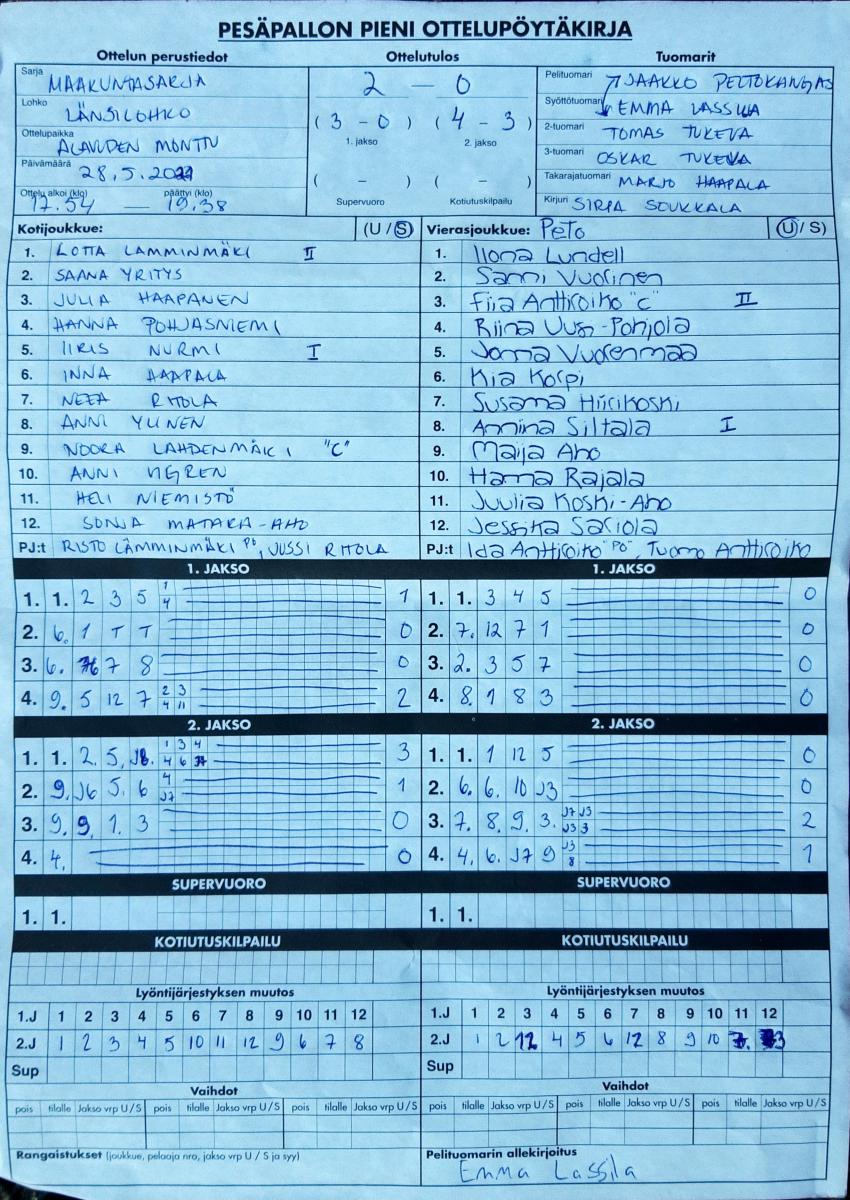 PESÄPALLON PIENI OTTELUPÖYTÄKIRJA
Ottelun perustiedot Ottelutulos Tuomarit
Sarja MAAKUNTASARJA
Lohko LÄNSILOHKO
Ottelupaikka ALAVUDEN MONTTU
Päivämäärä 28.5.2021
Ottelu alkoi (klo) 17.54 — päättyi (klo) 19.38
2 — 0
( 3 - 0 ) ( 4 - 3 )
1. jakso 2. jakso
( - ) ( - )
Supervuoro Kotiutuskilpailu
Pelituomari JAAKKO PELTOKANGAS
Syöttötuomari EMMA LASSILA
2-tuomari TOMAS TUKEVA
3-tuomari OSKAR TUKEVA
Takarajatuomari MARJO HAAPALA
Kirjuri SIRPA SOUKKALA
Kotijoukkue: (U / S)
1. LOTTA LAMMINMÄKI II
2. SAANA YRITYS
3. JULIA HAAPANEN
4. HANNA POHJASNIEMI
5. IIRIS NURMI I
6. INNA HAAPALA
7. NEEA RITOLA
8. ANNI YLINEN
9. NOORA LAHDENMÄKI "C"
10. ANNI
11. HELI NIEMISTÖ
12. SONJA MATARA-AHO
PJ:t RISTO LÄMMINMÄKI PÖ, JUSSI RITOLA
Vierasjoukkue: Peto (U / S)
1. Ilona Lundell
2. Sanni Vuorinen
3. Fiia Anttiroiko "C" II
4. Riina Uusi-Pohjola
5. Jonna Vuorenmaa
6. Kia Korpi
7. Susanna Hiirikoski
8. Annina Siltala I
9. Maija Aho
10. Hanna Rajala
11. Juulia Koski-Aho
12. Jessika Sariola
PJ:t Ida Anttiroiko "PÖ", Tuomo Anttiroiko
1. JAKSO 1. JAKSO
1. 1. 2 3 5 1 4 1
2. 6. 1 T T 0
3. 6. 7 8 0
4. 9. 5 12 7 2 3 4 11 2
1. 1. 3 4 5 0
2. 7. 12 7 1 0
3. 2. 3 5 7 0
4. 8. 1 8 3 0
2. JAKSO 2. JAKSO
1. 1. 2. 5. J6. 1 3 4 4 6 3
2. 9. J6 5. 6 4 J7 1
3. 9. 9. 1. 3 0
4. 4. 0
1. 1. 1 12 5 0
2. 6. 6. 10 J3 0
3. 7. 8. 9. 3. J7 J3 J3 3 2
4. 4. 6. J7 9 J3 8 1
SUPERVUORO SUPERVUORO
1. 1. 1. 1.
KOTIUTUSKILPAILU KOTIUTUSKILPAILU
Lyöntijärjestyksen muutos Lyöntijärjestyksen muutos
1.J 1 2 3 4 5 6 7 8 9 10 11 12
2.J 1 2 3 4 5 10 11 12 9 6 7 8
Sup
1.J 1 2 3 4 5 6 7 8 9 10 11 12
2.J 1 2 12 4 5 6 12 8 9 10 7. 3
Sup
Vaihdot Vaihdot
pois tilalle Jakso vrp U/S pois tilalle Jakso vrp U/S pois tilalle Jakso vrp U/S
pois tilalle Jakso vrp U/S pois tilalle Jakso vrp U/S pois tilalle Jakso vrp U/S
Rangaistukset (joukkue, pelaaja nro, jakso vrp U / S ja syy)
Pelituomarin allekirjoitus
Emma Lassila